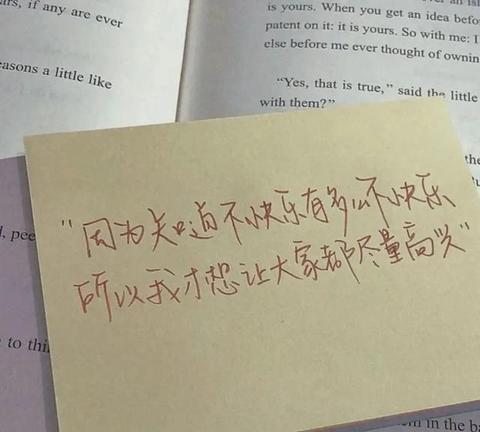 ars, if any are ever
easons a little like
is yours. When you get an idea befo
patent on it: it is yours. So with me: I
else before me ever thought of ownin
"Yes, that is true," said the little
with them?"
the
"因为知道不快乐有多么不快乐
所以我才想让大家都尽量高兴"
d, pee
to thi
in the ba